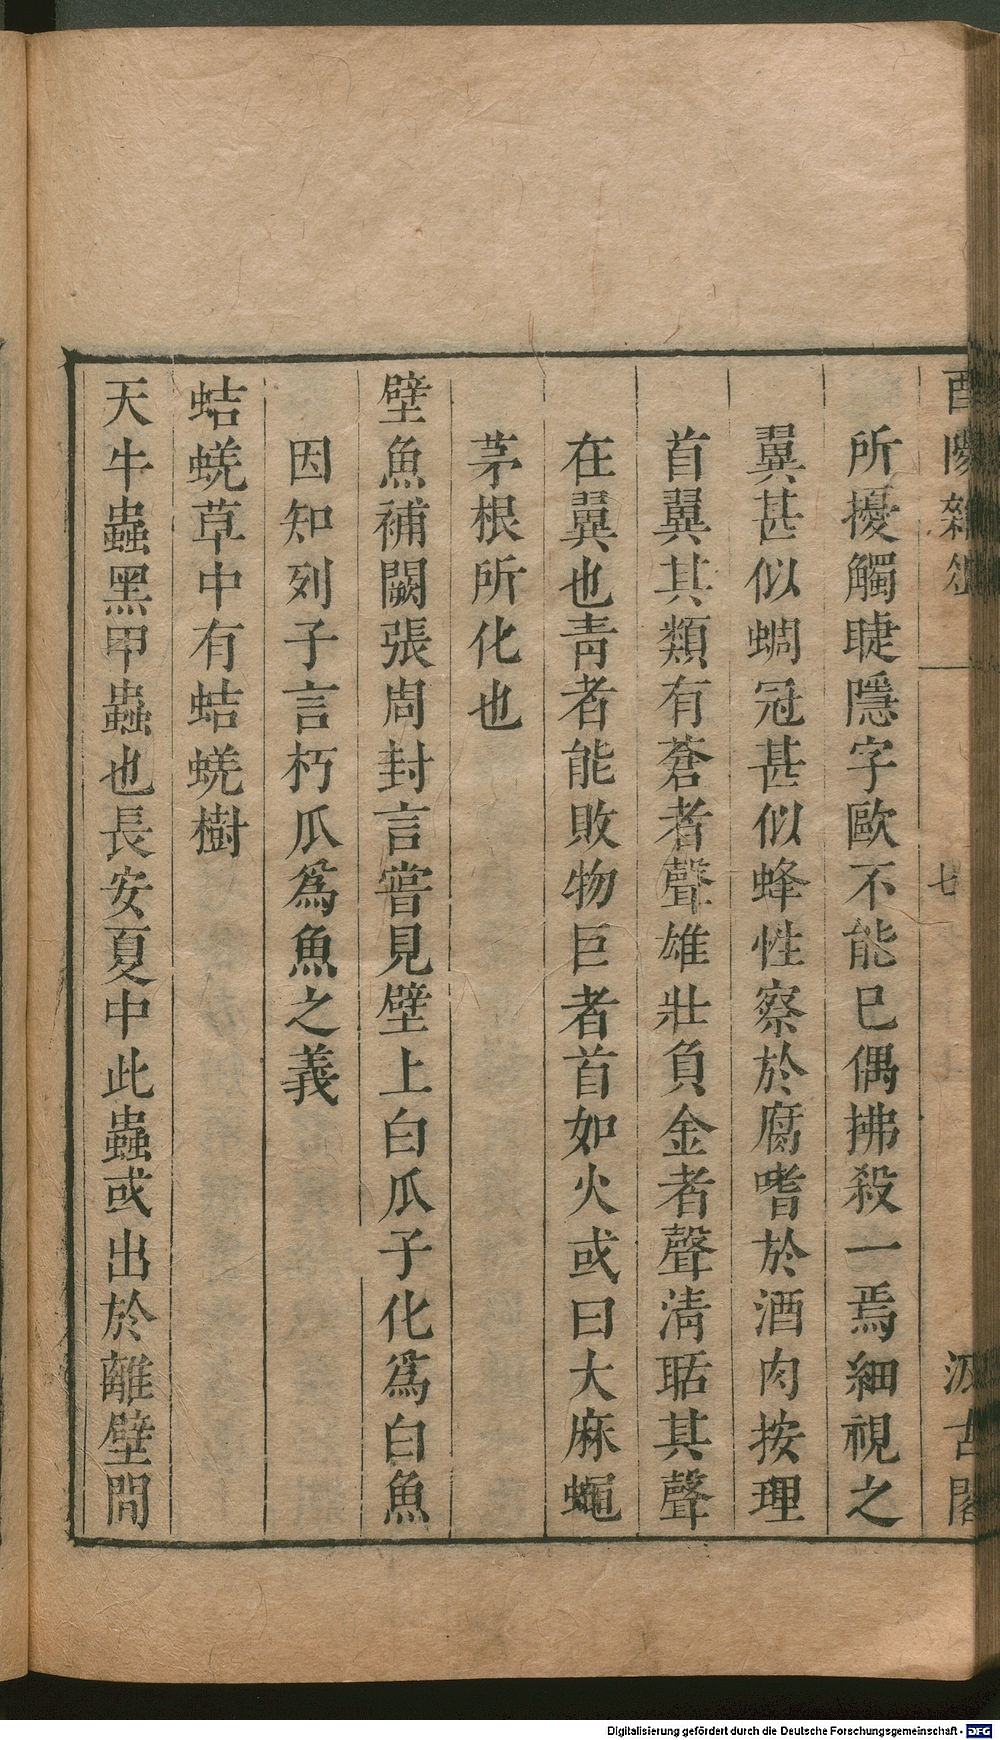 酉陽雜俎
七
汲古閣
所擾觸睫隱字歐不能已偶拂殺一焉細視之
翼甚似蜩冠甚似蜂性察於腐嗜於酒肉按理
首翼其類有蒼者聲雄壯負金者聲淸聒其聲
在翼也靑者能敗物巨者首如火或曰大麻蠅
茅根所化也
壁魚補闕張周封言嘗見壁上白瓜子化爲白魚
因知列子言朽瓜爲魚之義
蛣蜣草中有蛣蜣樹
天牛蟲黑甲蟲也長安夏中此蟲或出於離壁間
Digitalisierung gefördert durch die Deutsche Forschungsgemeinschaft - DFG